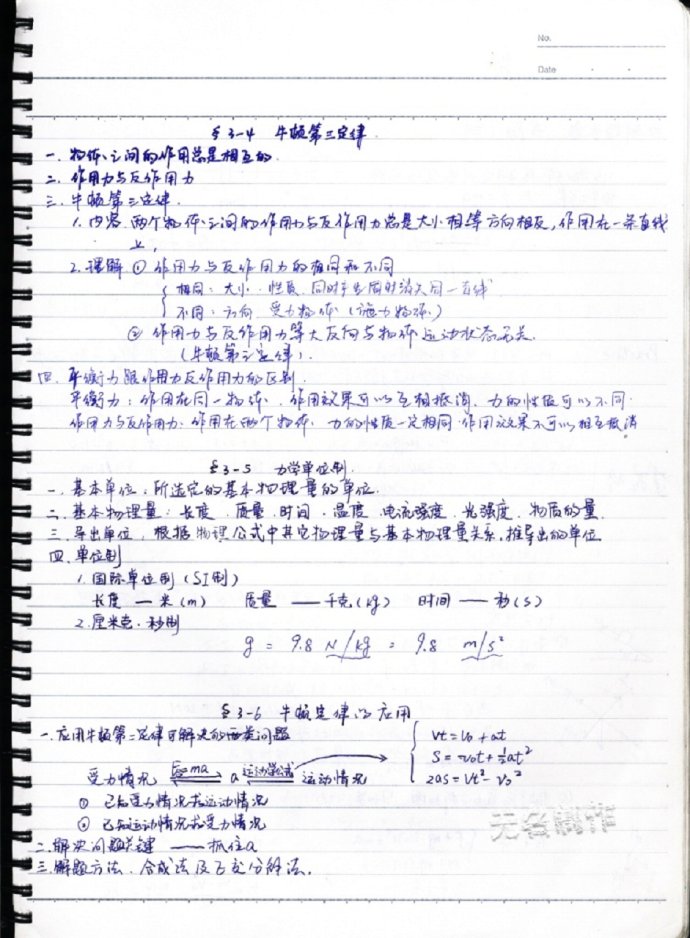 No.
Date
§3-4 牛顿第三定律.
一. 物体之间的作用总是相互的.
二. 作用力与反作用力
三. 牛顿第三定律.
1. 内容. 两个物体之间的作用力与反作用力总是大小相等方向相反,作用在一条直线
上.
2. 理解 ① 作用力与反作用力的相同和不同
相同: 大小. 性质. 同时产生同时消失同一直线
不同: 方向. 受力物体 (施力物体.)
② 作用力与反作用力等大反向与物体运动状态无关.
(牛顿第三定律).
四. 平衡力跟作用力反作用力的区别.
平衡力: 作用在同一物体. 作用效果可以互相抵消. 力的性质可以不同.
作用力与反作用力: 作用在两个物体. 力的性质一定相同. 作用效果不可以相互抵消
§3-5 力学单位制.
一. 基本单位: 所选定的基本物理量的单位.
二. 基本物理量: 长度. 质量. 时间. 温度. 电流强度. 光强度. 物质的量.
三. 导出单位, 根据物理公式中其它物理量与基本物理量关系,推导出的单位
四. 单位制
1. 国际单位制 (SI制)
长度 — 米 (m) 质量 —— 千克 (kg) 时间 —— 秒 (s)
2. 厘米克·秒制
g = 9.8 N/kg = 9.8 m/s²
§3-6 牛顿定律的应用
一. 应用牛顿第二定律可解决的两类问题
受力情况 F=ma a 运动学公式 运动情况
Vt = V₀ + at
S = V₀t + ½at²
2as = Vt² - V₀²
① 已知受力情况求运动情况
② 已知运动情况求受力情况
二. 解决问题关键 —— 抓住a
三. 解题方法. 合成法及正交分解法.
无名制作